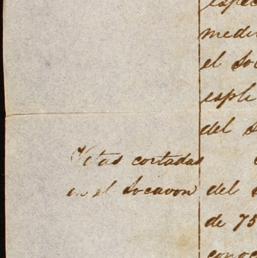 medi
el Soc
espli
del S
Vetas cortadas
en el Socavon
del S
de 75
conoc